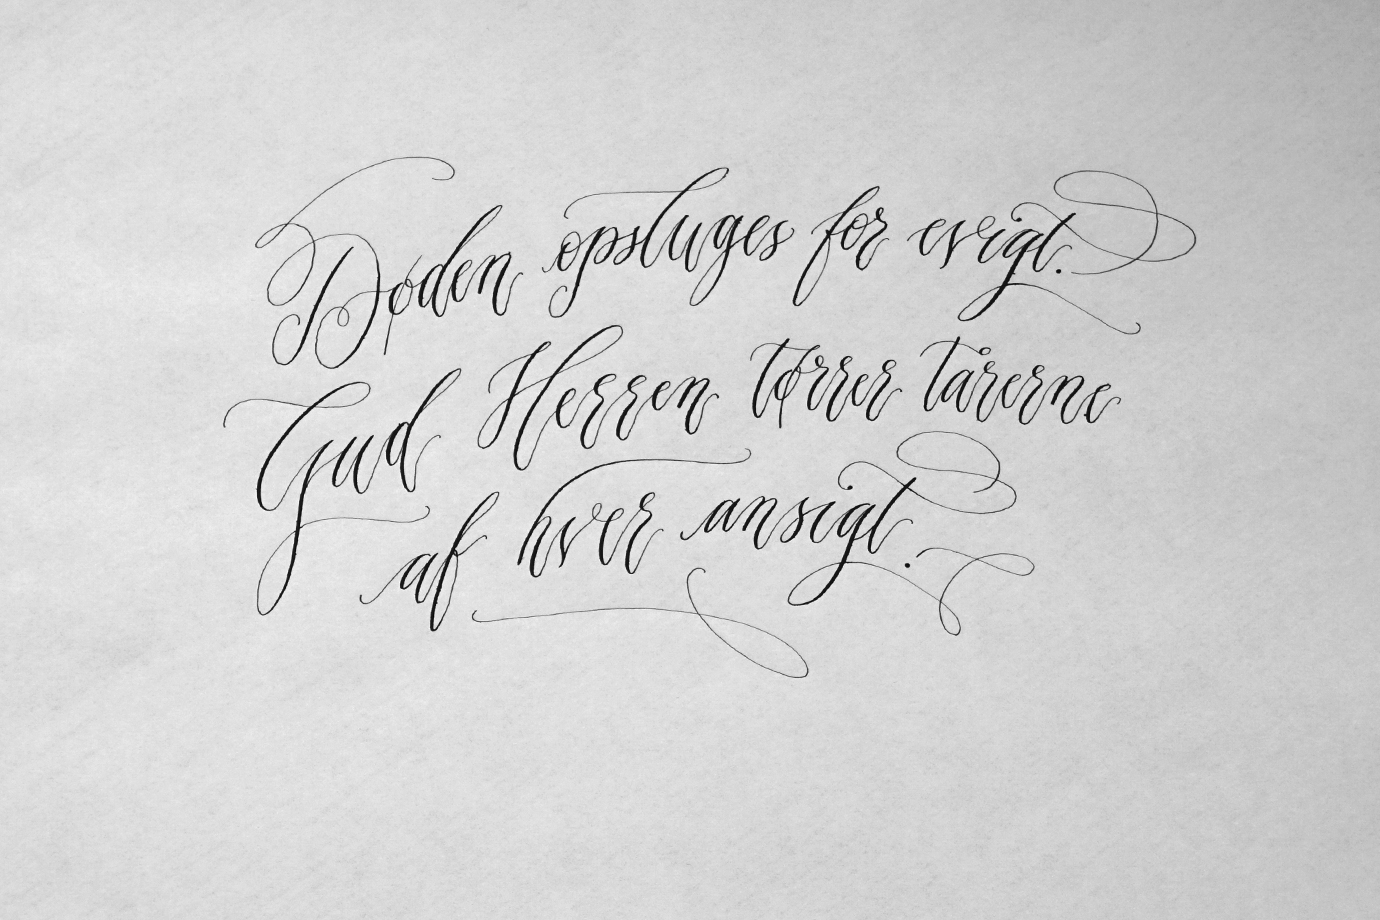 Døden opsluges for evigt.
Gud Herren tørrer tårerne
af hver ansigt.